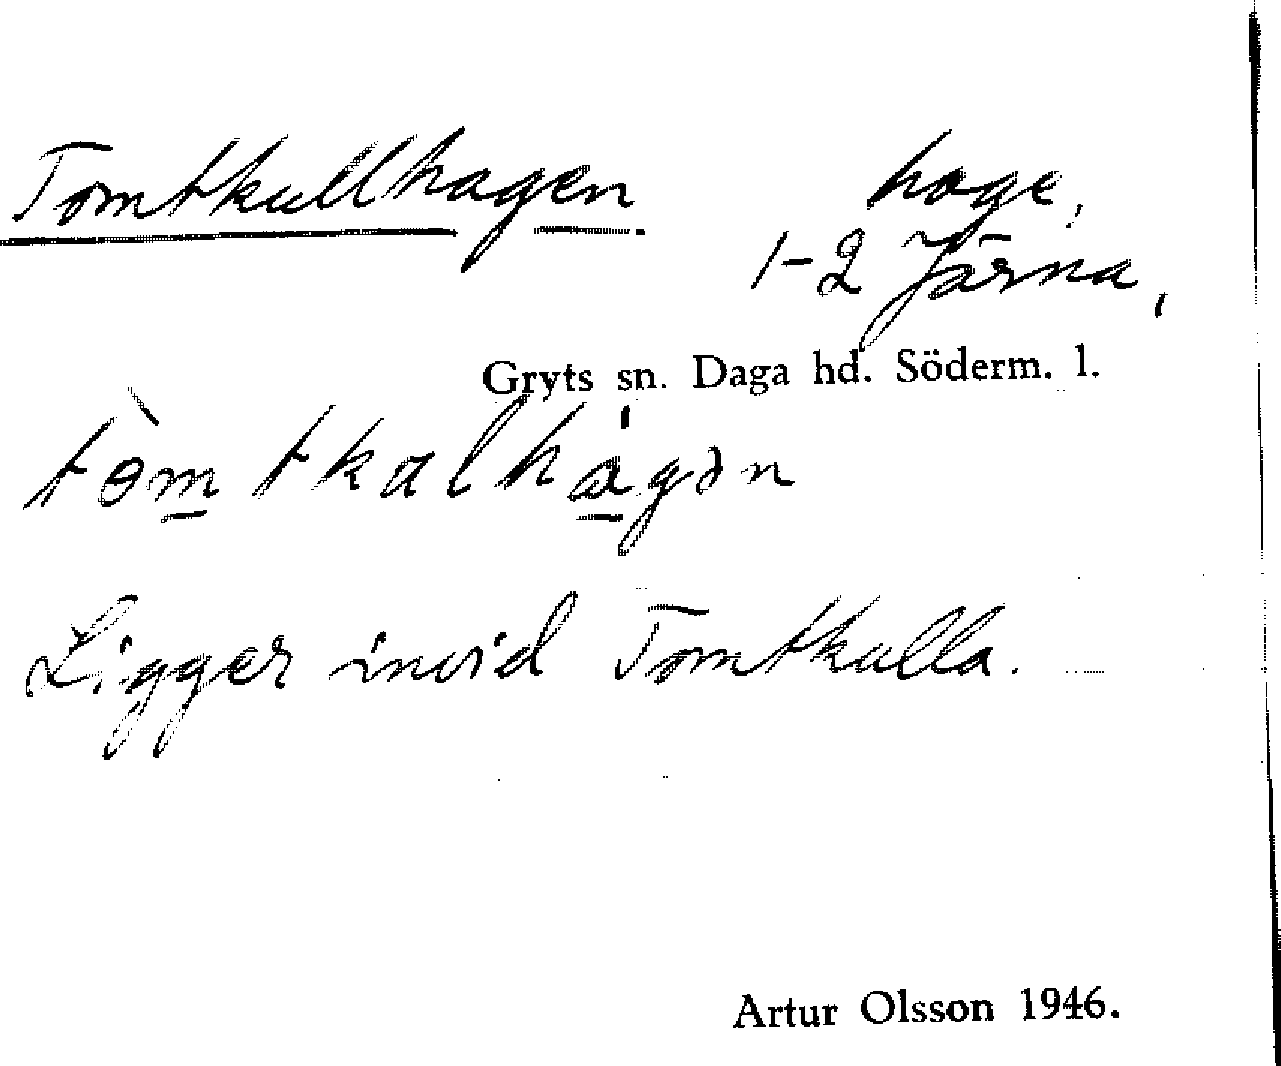 Tomtkullhagen hage,
1-2 Järna,
Gryts sn. Daga hd. Söderm. l.
Ligger invid Tomtkulla.
Artur Olsson 1946.